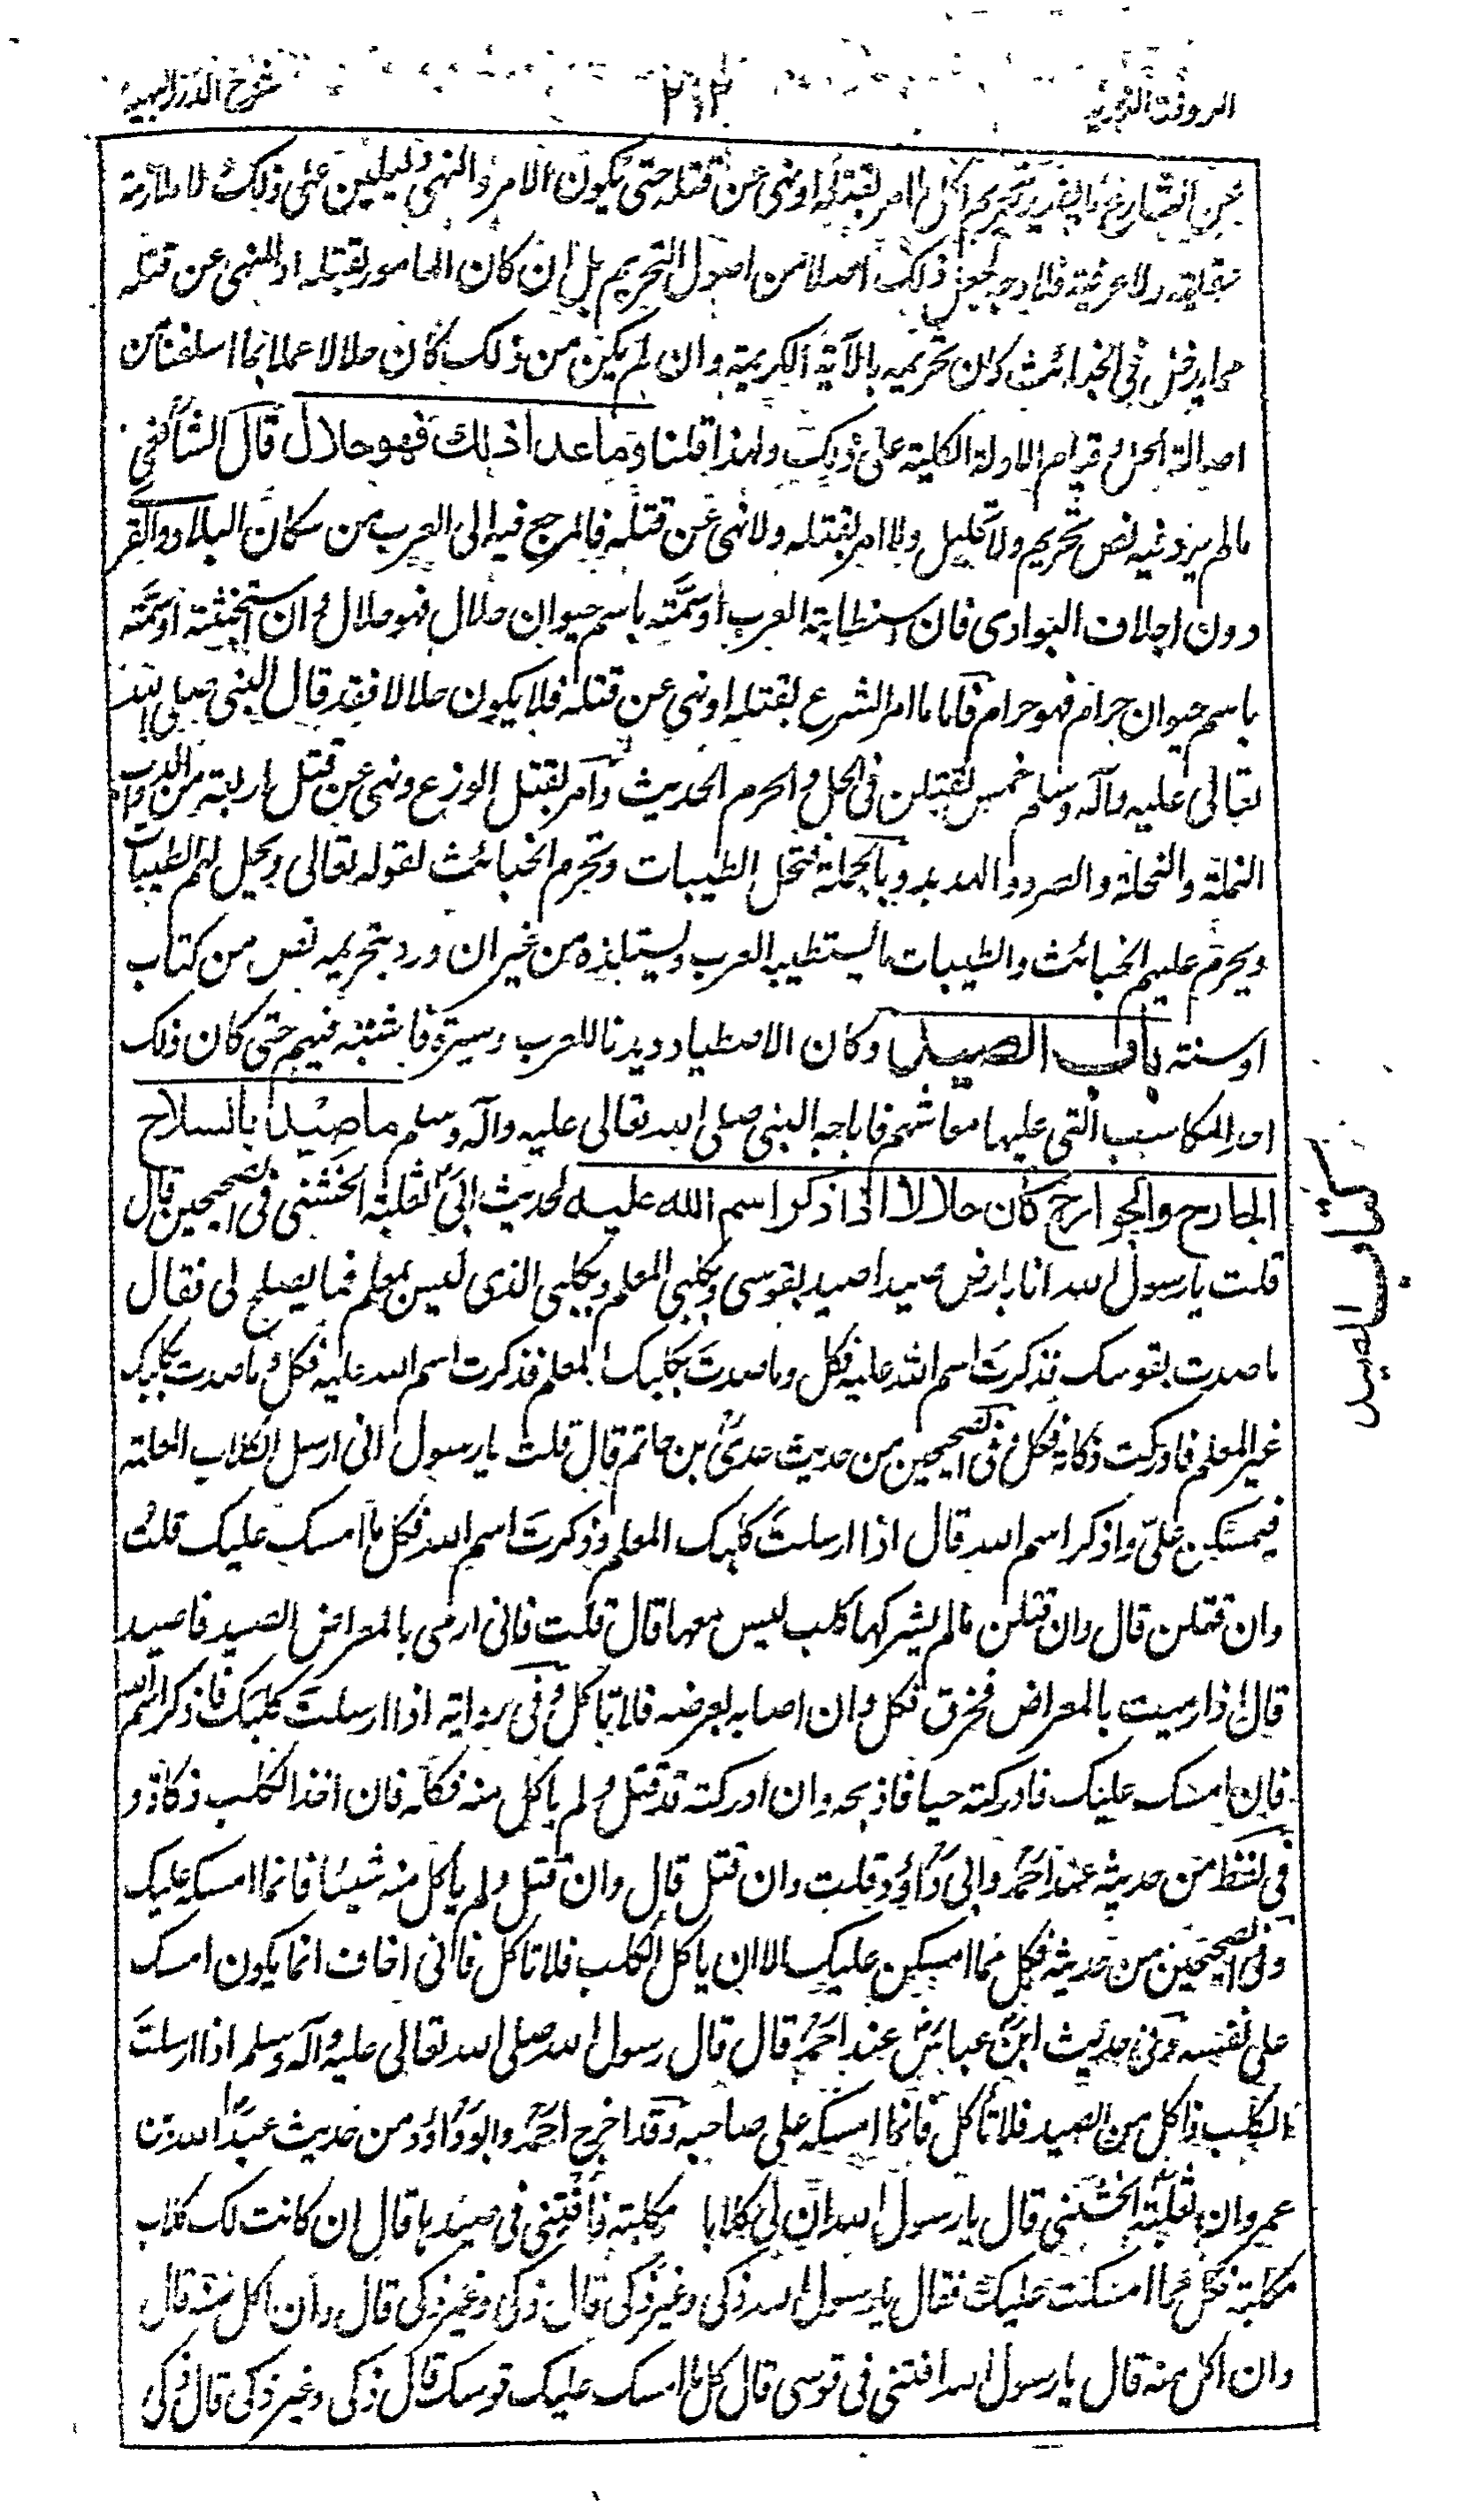 الروضة الندية ٢١٢ شرح الدرر البهية
عن الشارع ما يفيد تحريم اكل ما امر بقتله او نهى عن قتله حتى يكون الامر والنهي دليلين على ذلك ولا ملازمة
عقلية ولا عرفية فلا وجه لجعل ذلك اصلا من اصول التحريم بل ان كان المامور بقتله او المنهى عن قتله
مما يدخل في الخبائث كان تحريمه بالآية الكريمة وان لم يكن من ذلك كان حلالا عملا بما اسلفنا من
اصالة الحل وقيام الادلة الكلية على ذلك ولهذا قلنا وما عدا ذلك فهو حلال قال الشافعي
ما لم يرد فيه نص تحريم ولا تحليل ولا امر بقتله ولا نهى عن قتله فالمرجع فيه الى العرب من سكان البلاد والقرى
دون اجلاف البوادى فان استطابته العرب او سمّته باسم حيوان حلال فهو حلال وان استخبثته او سمّته
باسم حيوان حرام فهو حرام فاما ما امر الشرع بقتله او نهى عن قتله فلا يكون حلالا فقد قال النبى صلى الله
تعالى عليه وآله وسلم خمس يقتلن فى الحل والحرم الحديث وامر بقتل الوزغ ونهى عن قتل اربعة من الدواب
النملة والنحلة والصرد والهدهد وبالجملة فتحل الطيبات وتحرم الخبائث لقوله تعالى ويحل لهم الطيبات
ويحرم عليهم الخبائث والطيبات ما يستطيبه العرب ويستلذه من غير ان ورد بتحريمه نص من كتاب
او سنة باب الصيد وكان الاصطياد ديدنا للعرب وسيرة فاشية فيهم حتى كان ذلك
احد المكاسب التى عليها معاشهم فاباحه النبى صلى الله تعالى عليه وآله وسلم ما صيد بالسلاح
الجارح والجوارح كان حلالا اذا ذكر اسم الله عليه لحديث ابى ثعلبة الخشنى فى الصحيحين قال
قلت يا رسول الله انا بارض صيد اصيد بقوسى وبكلبى المعلم وبكلبى الذى ليس بمعلم فما يصلح لى فقال
ما صدت بقوسك فذكرت اسم الله عليه فكل وما صدت بكلبك المعلم فذكرت اسم الله عليه فكل وما صدت بكلبك
غير المعلم فادركت ذكاته فكل وفى الصحيحين من حديث عدى بن حاتم قال قلت يا رسول انى ارسل الكلاب المعلمة
فيمسكن علىّ واذكر اسم الله قال اذا ارسلت كلبك المعلم وذكرت اسم الله فكل ما امسك عليك قلت
وان قتلن قال وان قتلن ما لم يشركها كلب ليس معها قال قلت فانى ارمى بالمعراض الصيد فاصيد
قال اذا رميت بالمعراض فخزق فكل وان اصابه بعرضه فلا تاكل وفى رواية اذا ارسلت كلبك فاذكر اسم الله
فان امسك عليك فادركته حيا فاذبحه وان ادركته قد قتل ولم ياكل منه فكله فان اخذ الكلب ذكاة و
فى لفظ من حديثه عند احمد وابى داود قلت وان قتل قال وان قتل ولم ياكل منه شيئا فانما امسكه عليك
وفى الصحيحين من حديثه فكل مما امسكن عليك الا ان ياكل الكلب فلا تاكل فانى اخاف انما يكون امسك
على نفسه وفى حديث ابن عباس عند احمد قال قال رسول الله صلى الله تعالى عليه وآله وسلم اذا ارسلت
الكلب فاكل من الصيد فلا تاكل فانما امسكه على صاحبه وقد اخرج احمد وابو داود من حديث عبد الله بن
عمرو ان ثعلبة الخشنى قال يا رسول الله ان لى كلابا مكلبة فافتنى فى صيدها قال ان كانت لك كلاب
مكلبة فكل مما امسكت عليك فقال يا رسول الله ذكى وغير ذكى قال ذكى وغير ذكى قال وان اكل منه قال
وان اكل منه قال يا رسول الله افتنى فى قوسى قال كل ما امسك عليك قوسك قال ذكى وغير ذكى قال ذكى
كتاب الصيد